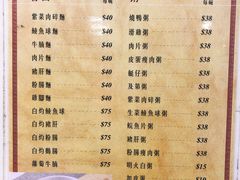 每碗
紫菜肉碎麵 $40
鯪魚球麵 $40
牛腩麵 $40
肉片麵 $40
豬肝麵 $40
粉腸麵 $40
雞腳麵 $40
白灼鯪魚球 $75
白灼豬肝 $75
白灼粉腸 $75
白灼鵝腸 $75
蘿蔔牛腩 $75
每碗
燒鴨粥 $38
滑雞粥 $38
肉片粥 $38
皮蛋瘦肉粥 $38
艇仔粥 $38
及第粥 $38
紫菜肉碎粥 $38
生菜鯪魚球粥 $38
鯇魚片粥 $38
豬肝粥 $38
粉腸瘦肉粥 $38
明火白粥 $15